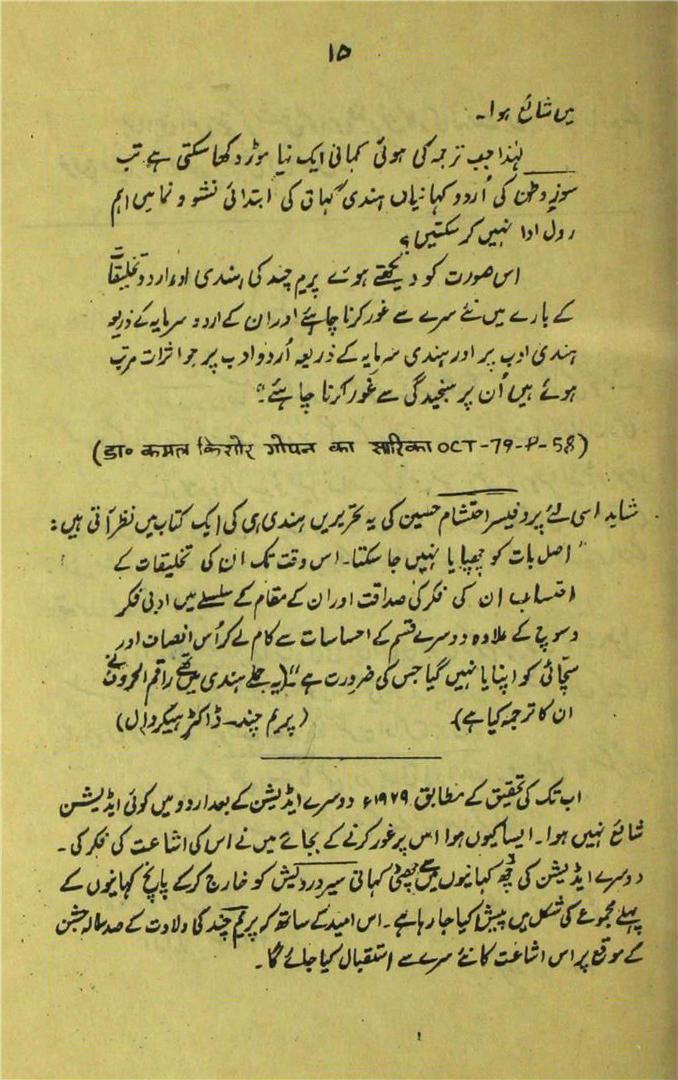 ۱۵
میں شائع ہوا۔
لہٰذا جب ترجمہ کی ہوئی کہانی ایک نیا موڑ دکھا سکتی ہے تب
سوزِ وطن کی اُردو کہانیاں ہندی کہانی کی ابتدائی نشو و نما میں اہم
رول ادا نہیں کر سکتیں؟
اس صورت کو دیکھتے ہوئے پریم چند کی ہندی اور اردو تخلیقات
کے بارے میں نئے سرے سے غور کرنا چاہئے اور ان کے اردو سرمایہ کے ذریعہ
ہندی ادب پر اور ہندی سرمایہ کے ذریعہ اُردو ادب پر جو اثرات مرتب
ہوئے ہیں اُن پر سنجیدگی سے غور کرنا چاہئے"
(डा० कमल किशोर गोपन का सारिका OCT-79-P-58)
شاید اسی لئے پروفیسر احتشام حسین کی یہ تحریریں ہندی ہی کی ایک کتاب میں نظر آتی ہیں:
"اصل بات کو چھپایا نہیں جا سکتا۔ اس وقت تک ان کی تخلیقات کے
احتساب ان کی فکر کی صداقت اور ان کے مقام کے سلسلے میں ادبی فکر
و سوچ کے علاوہ دوسرے قسم کے احساسات سے کام لے کر اُس انصاف اور
سچائی کو اپنایا نہیں گیا جس کی ضرورت ہے"۔ (یہ جملے ہندی میں تھے راقم الحروف نے
ان کا ترجمہ کیا ہے) (پریم چند۔ ڈاکٹر )
اب تک کی تحقیق کے مطابق ۱۹۲۹ء دوسرے ایڈیشن کے بعد اردو میں کوئی ایڈیشن
شائع نہیں ہوا۔ ایسا کیوں ہوا اس پر غور کرنے کے بجائے میں نے اس کی اشاعت کی فکر کی۔
دوسرے ایڈیشن کی چھ کہانیوں میں سے چھٹی کہانی سیر درویش کو خارج کر کے پانچ کہانیوں کے
پہلے مجموعے کی شکل میں پیش کیا جا رہا ہے۔ اس امید کے ساتھ کہ پریم چند کی ولادت کے صد سالہ جشن
کے موقع پر اس اشاعت کا نئے سرے سے استقبال کیا جائے گا۔